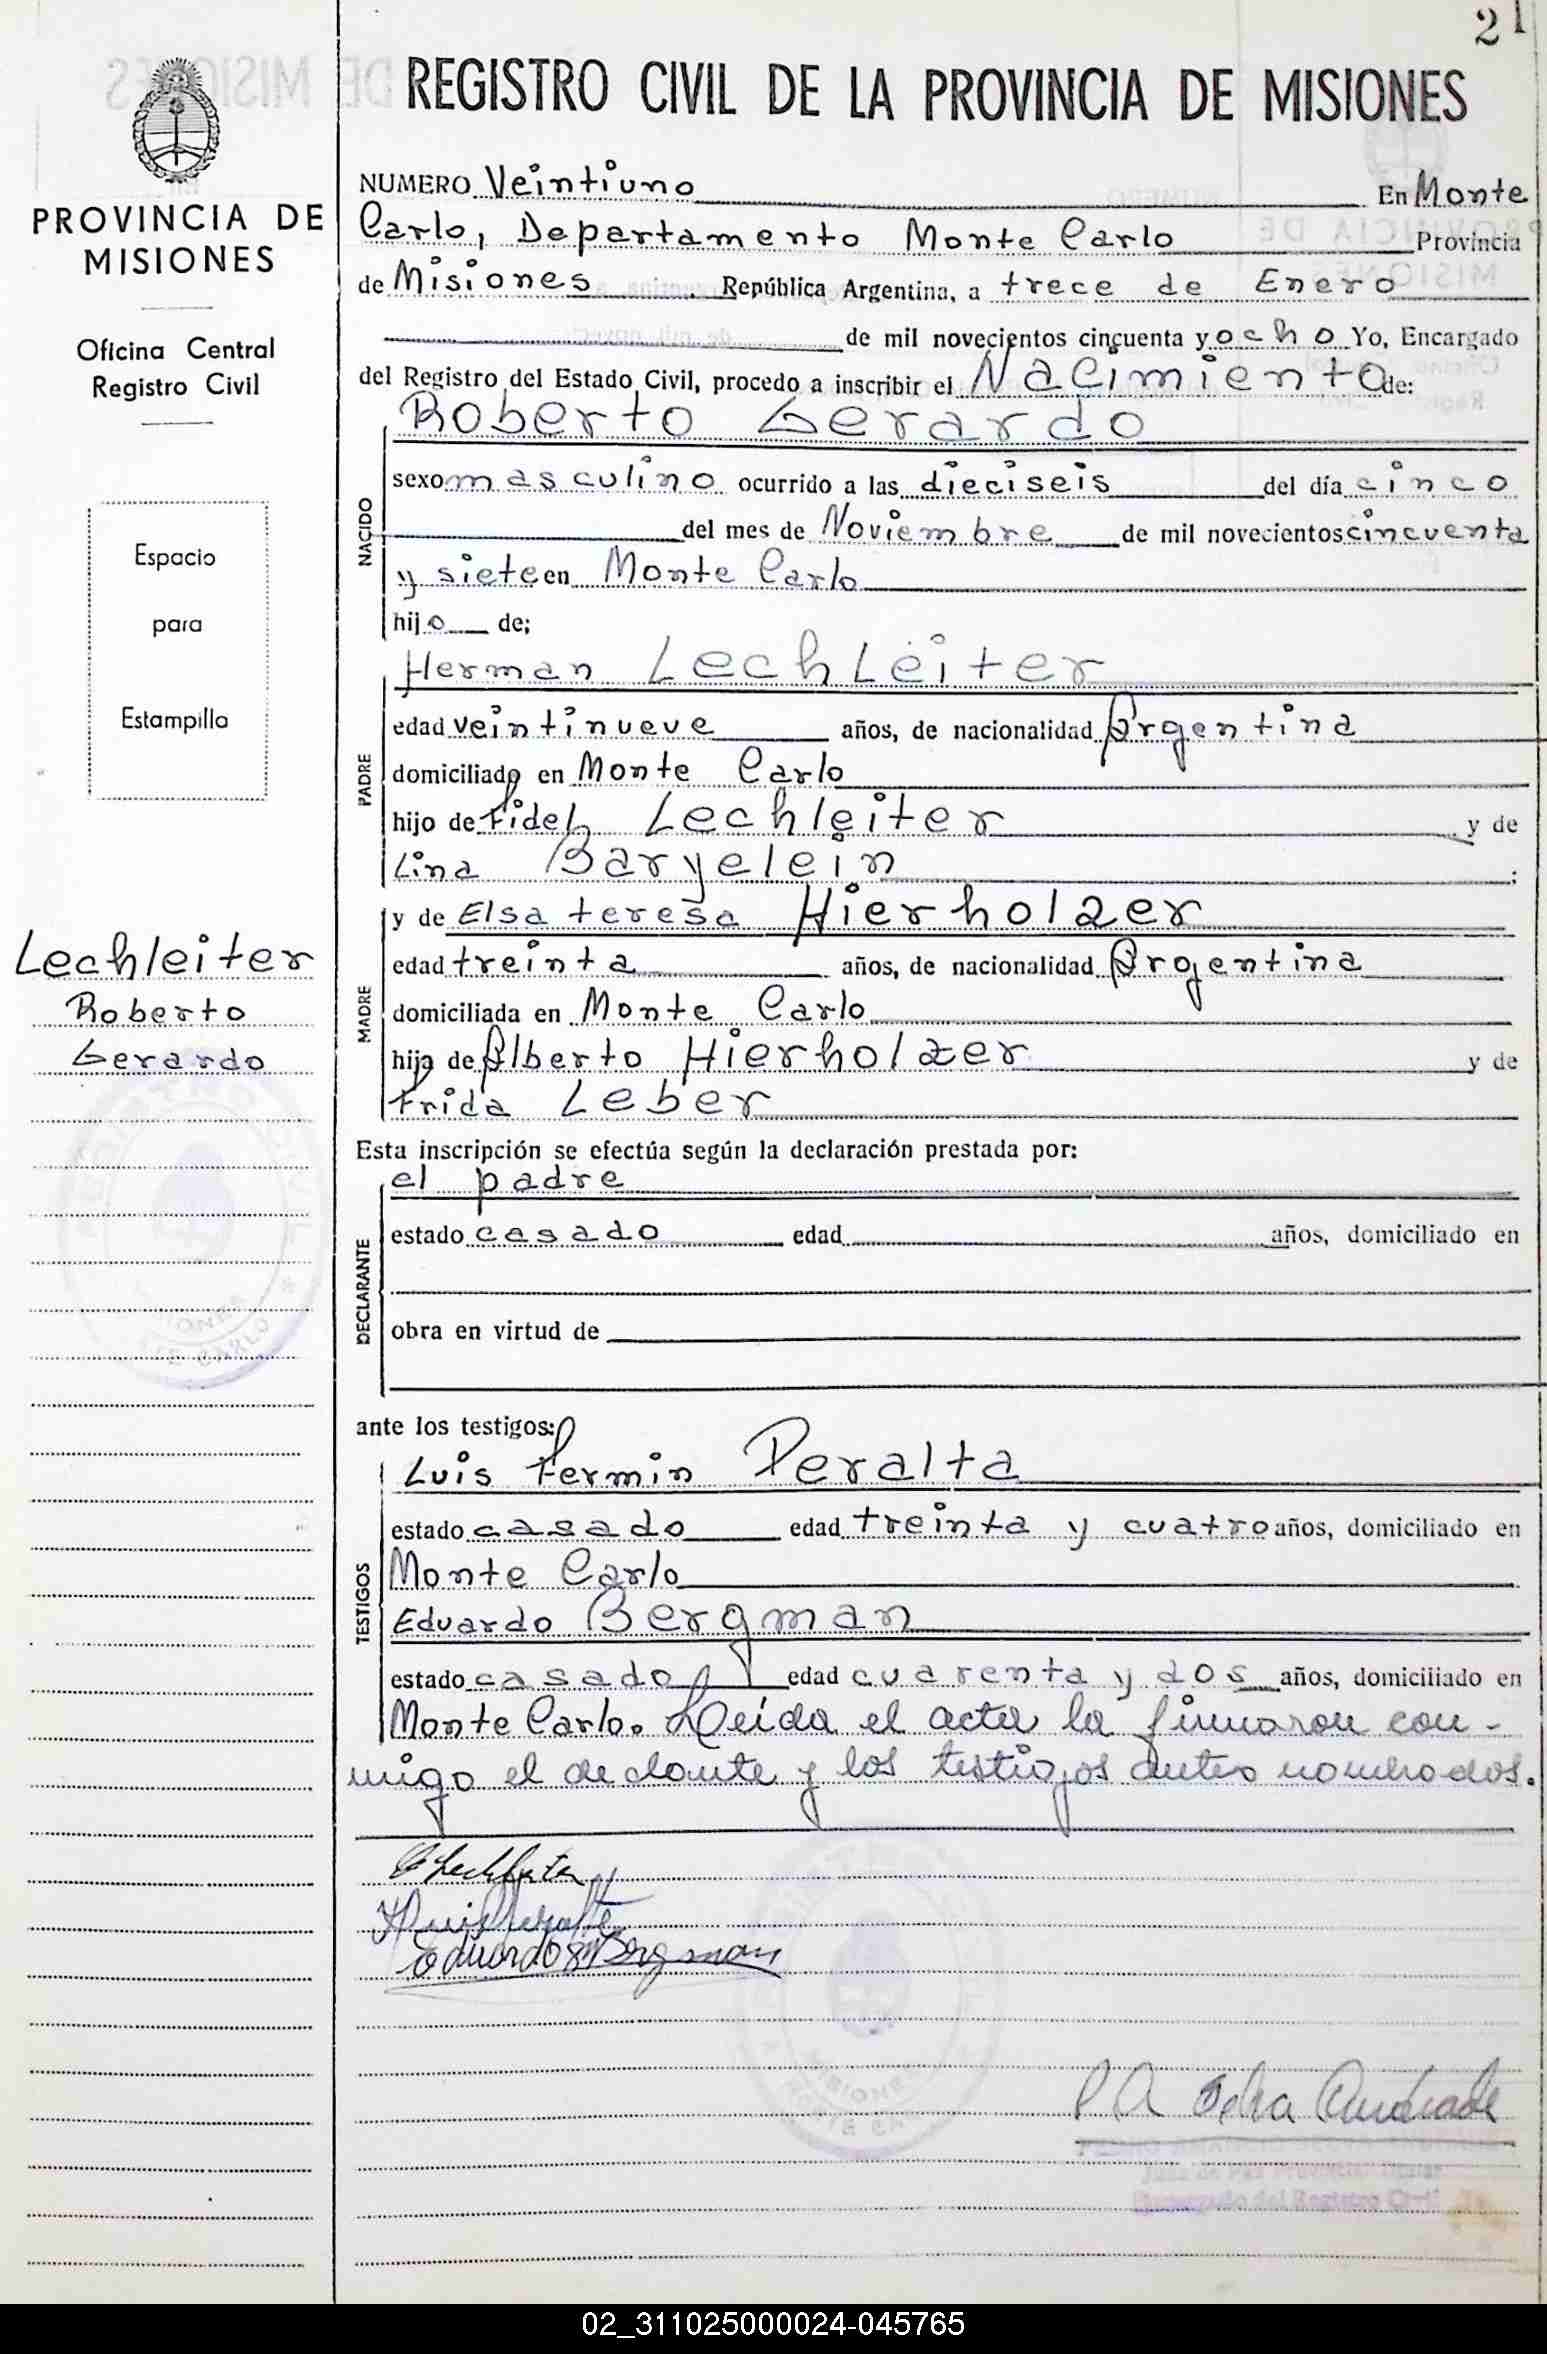 21
REGISTRO CIVIL DE LA PROVINCIA DE MISIONES
PROVINCIA DE
MISIONES
Oficina Central
Registro Civil
Espacio
para
Estampilla
Lechleiter
Roberto
Gerardo
NUMERO Veintiuno En Monte
Carlo, Departamento Monte Carlo Provincia
de Misiones República Argentina, a trece de Enero
de mil novecientos cincuenta y ocho Yo, Encargado
del Registro del Estado Civil, procedo a inscribir el Nacimiento de:
Roberto Gerardo
NACIDO
sexo masculino ocurrido a las dieciseis del día cinco
del mes de Noviembre de mil novecientos cincuenta
y siete en Monte Carlo
hijo de;
Herman Lechleiter
PADRE
edad veintinueve años, de nacionalidad Argentina
domiciliado en Monte Carlo
hijo de Fidel Lechleiter y de
Lina Baryelein ;
y de Elsa teresa Hierholzer
MADRE
edad treinta años, de nacionalidad Argentina
domiciliada en Monte Carlo
hija de Alberto Hierholzer y de
Frida Leber
Esta inscripción se efectúa según la declaración prestada por:
el padre
DECLARANTE
estado casado edad años, domiciliado en
obra en virtud de
ante los testigos:
Luis Fermin Peralta
TESTIGOS
estado casado edad treinta y cuatro años, domiciliado en
Monte Carlo
Eduardo Bergman
estado casado edad cuarenta y dos años, domiciliado en
Monte Carlo. Leida el acta la firmaron con-
migo el declante y los testigos antes nombrados.
Lechleiter
Luis Peralta
Eduardo Bergman
P A Andrade
Juez de Paz Provincial Titular
Encargado del Registro Civil
02_311025000024-045765